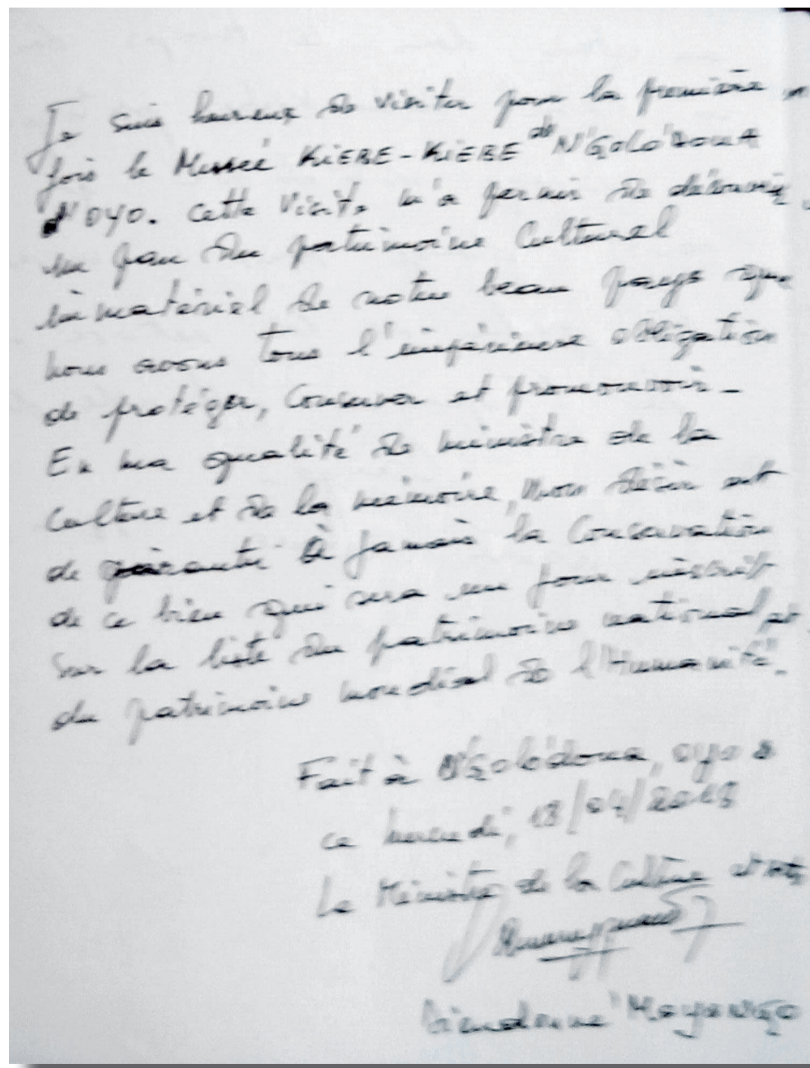 Je suis heureux de visiter pour la première
fois le Museé KiEBE-KiEBE de N'Golo'DOUA
d'OYO. Cette visite m'a permis de découvrir
un pan du patrimoine Culturel
immatériel de notre beau pays que
nous avons tous l'impérieuse obligation
de protéger, Conserver et promouvoir_
En ma qualité de ministre de la
Culture et de la mémoire, mon désir est
de garantir à jamais la Conservation
de ce bien qui sera un jour inscrit
sur la liste du patrimoine national et
du patrimoine mondial de l'Humanité".
Fait à N'Golodoua, oyo
ce mercredi, 18/04/2018
Le Ministre de la Culture et
Dieudonné Moyongo